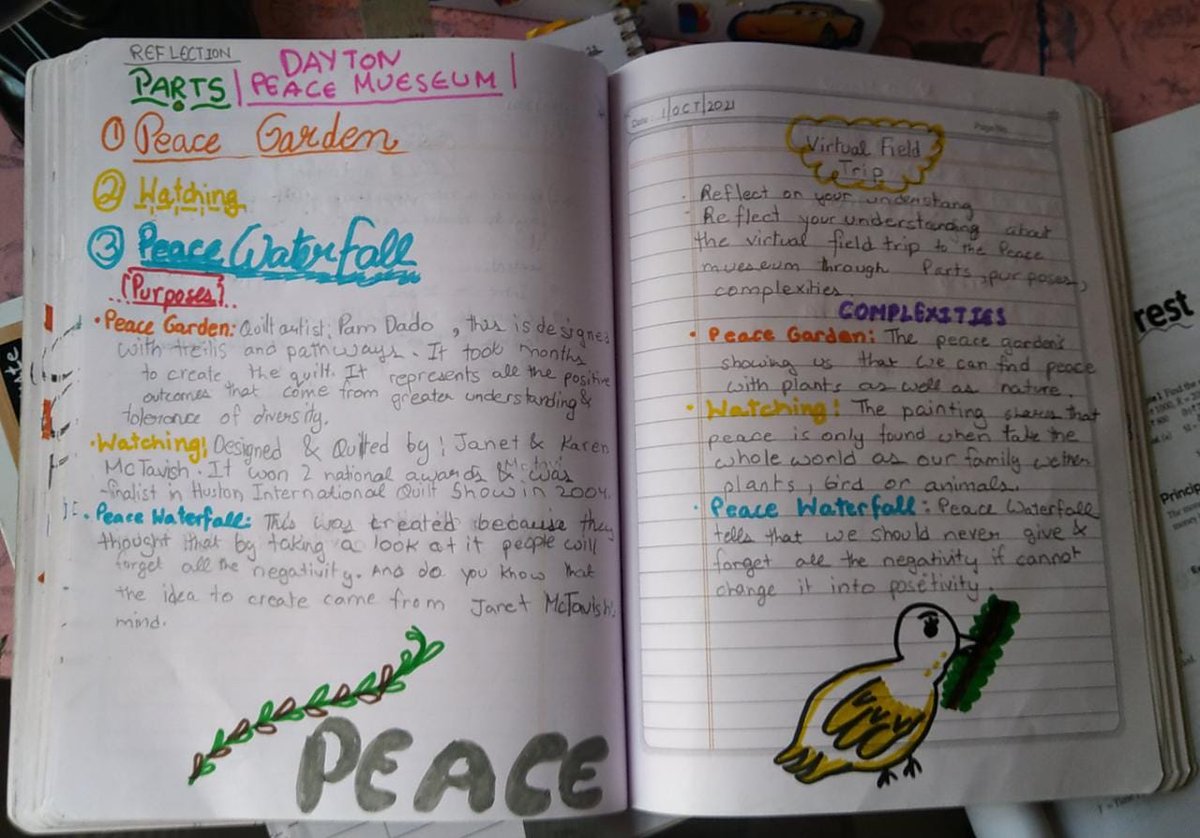 REFLECTION
PARTS
DAYTON
PEACE MUESEUM
① Peace Garden
② Watching
③ Peace Waterfall
Purposes
• Peace Garden: Quilt artist: Pam Dado, this is designed
with treilis and pathways. It took months
to create the quilt. It represents all the positive
outcomes that come from greater understanding &
tolerance of diversity.
• Watching: Designed & Quilted by: Janet & Karen
McTavish. It won 2 national awards & was
finalist in Huston International Quilt Show in 2004.
• Peace Waterfall: This was created because they
thought that by taking a look at it people will
forget all the negativity. And do you know that
the idea to create came from Janet McTavish
mind.
PEACE
Date: 1/OCT/2021
Page No.
Virtual Field
Trip
• Reflect on your understang
• Reflect your understanding about
the virtual field trip to the Peace
mueseum through Parts, purposes,
complexities.
COMPLEXITIES
• Peace Garden: The peace garden's
showing us that we can find peace
with plants as well as nature.
• Watching: The painting shares that
peace is only found when take the
whole world as our family wether
plants, bird or animals.
• Peace Waterfall: Peace Waterfall
tells that we should never give &
forget all the negativity if cannot
change it into posetivity.
rest
Princip